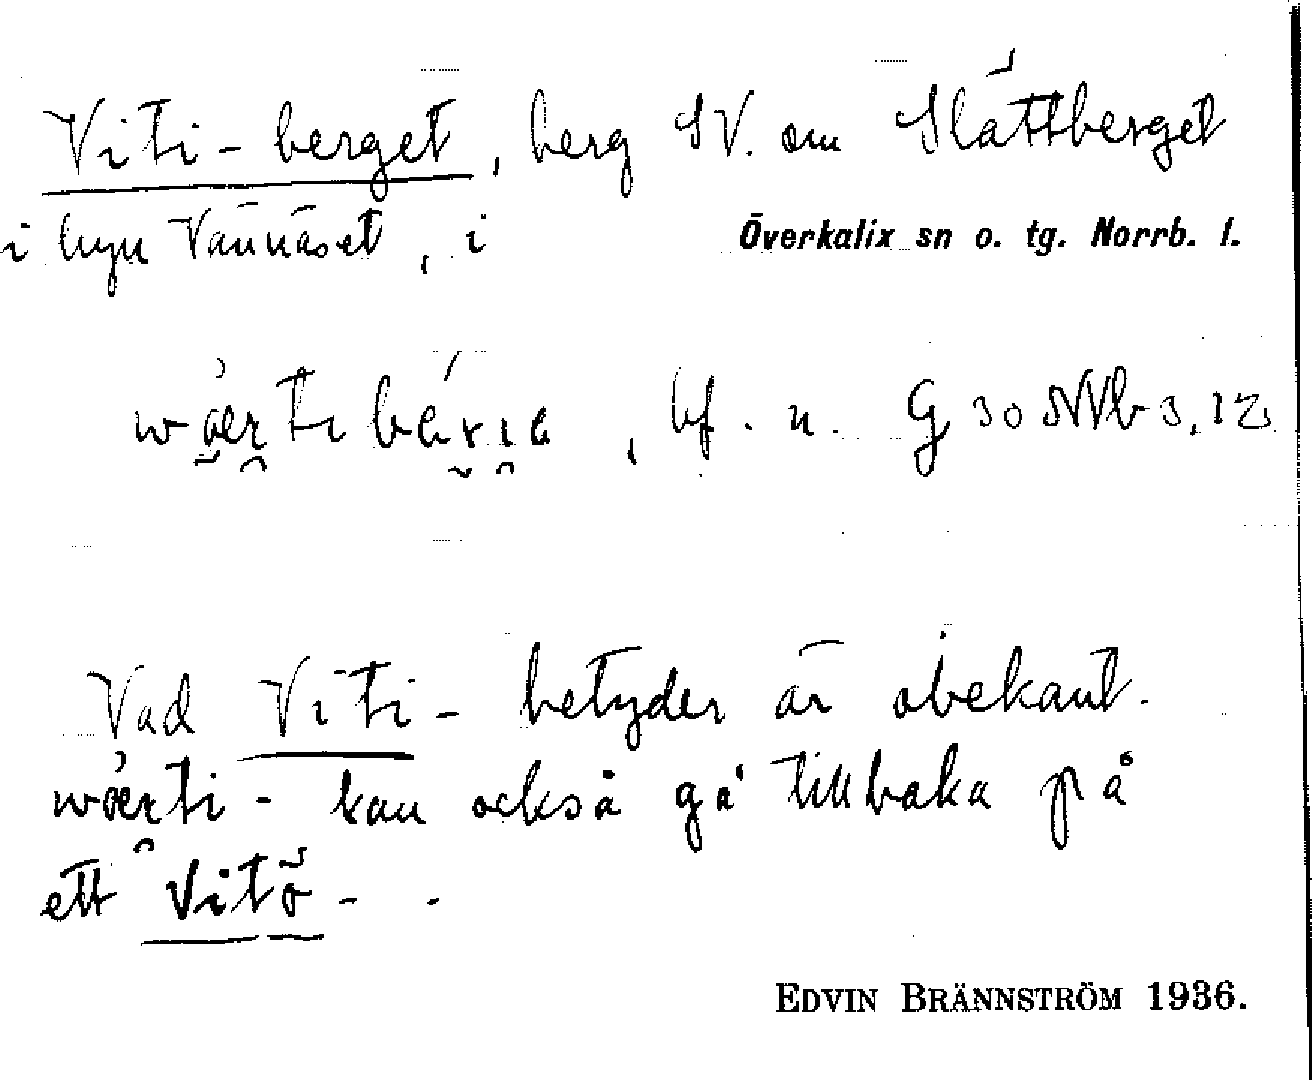 Viti-berget, berg SV. om Slättberget
i byn Vännäset, i Överkalix sn o. tg. Norrb. l.
bf. n. G 30 NVb 3,12
Vad Viti- betyder är obekant.
kan också gå tillbaka på
ett Vitö- .
EDVIN BRÄNNSTRÖM 1936.